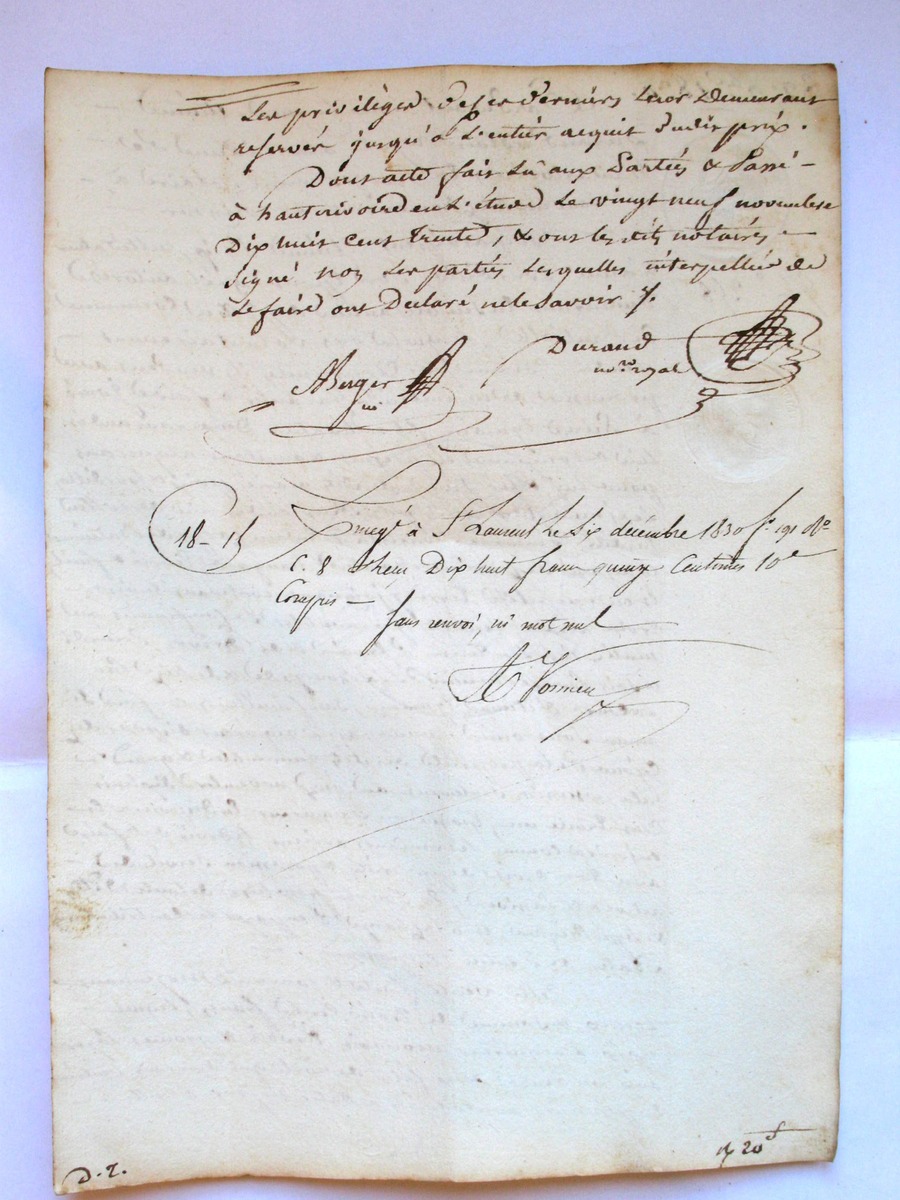 Les privilèges de ces derniers leur demeurant
reservés jusqu'à l'entier acquit dudit prix.
Dont acte fait lû aux Parties & Passé
à hauterivoire en l'étude le vingt neuf novembre
Dix huit cent trente, & ont lesdits notaires
signé non les parties lesquelles interpellées de
le faire ont Declaré ne le savoir ./.
Durand
nore royal
Berger
18 - 15
à St Laurent le six décembre 1830 fo 191 Ro
C. 8 Reçu Dix huit francs quinze Centimes 10e
Compris —
sans renvoi, ni mot nul
D. 2.
20